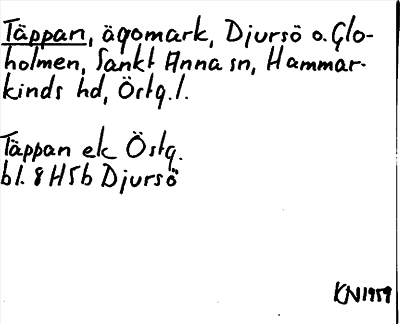 Täppan, ägomark, Djursö o. Glo-
holmen, Sankt Anna sn, Hammar-
kinds hd, Östg. l.
Täppan ek Östg.
bl. 8 H5b Djursö
KN1959